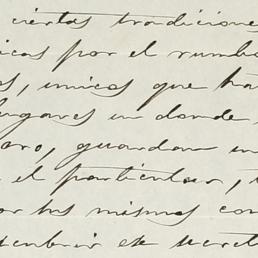 ciertas tradiciones
icas por el rumbo
s, unicos que ha
lugares en donde
aro, guardan un
el particular,
or los mismos con
scubrir ese secret